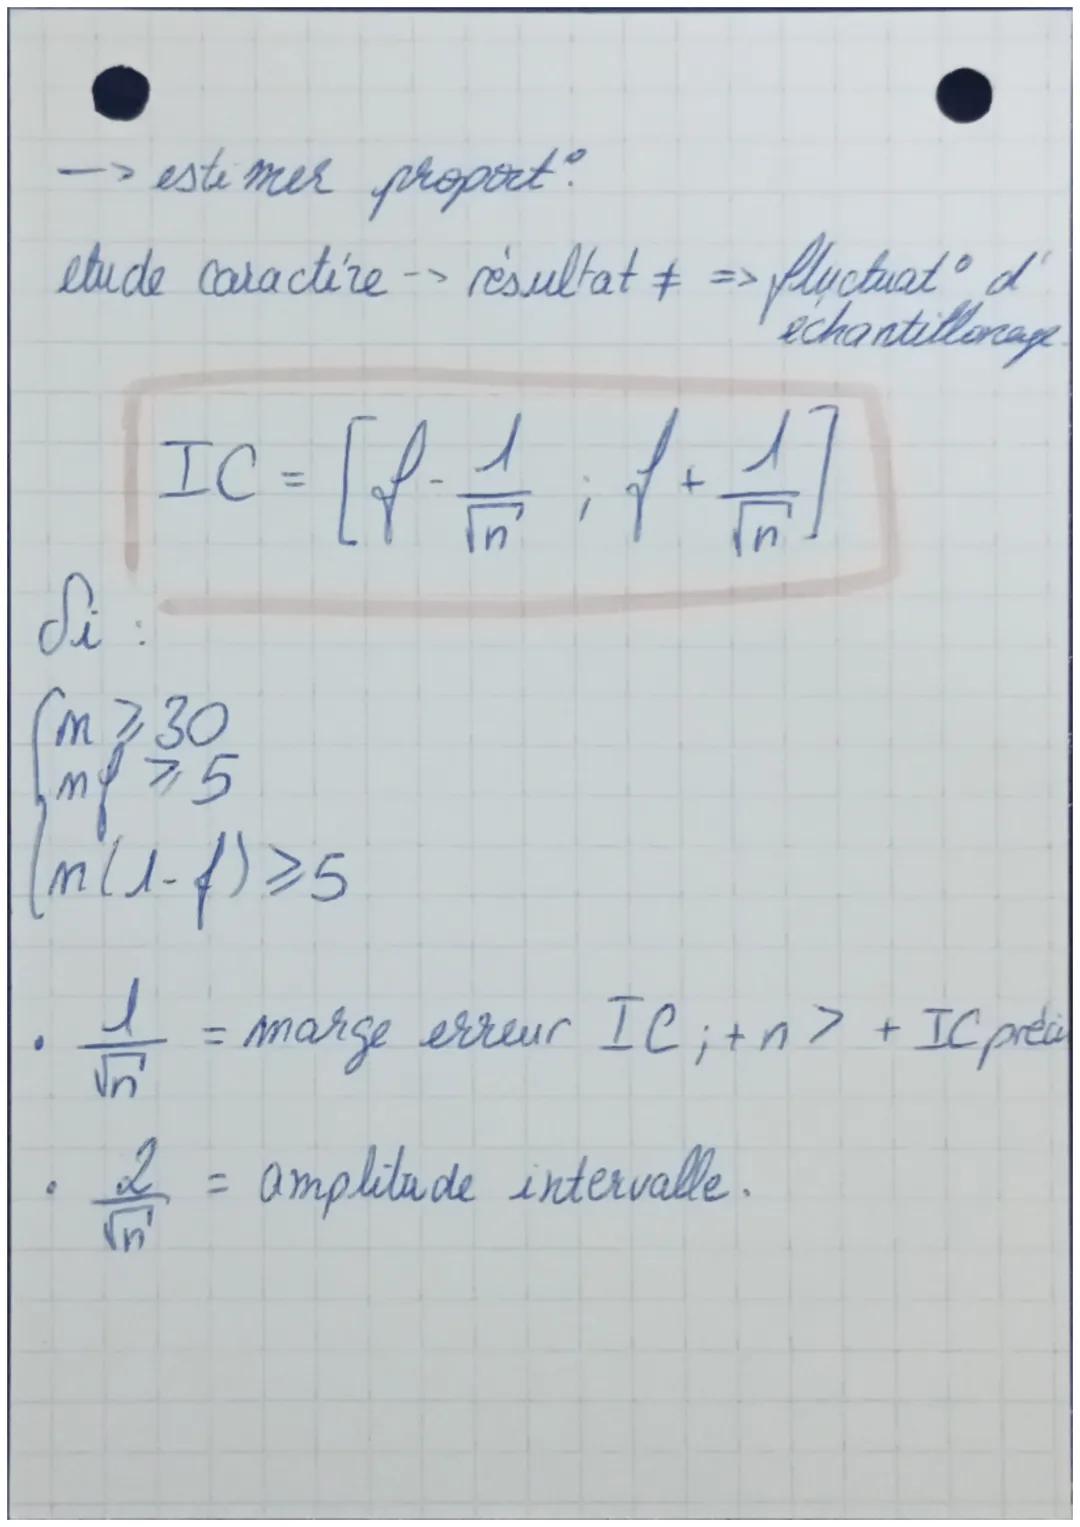 --> estimer proport°.
etude caractère --> résultat ≠ => fluctuat° d'
échantillonage.
IC = [f - 1/√n ; f + 1/√n]
Si :
{ n ⩾ 30
nf ⩾ 5
n(1-f) ⩾ 5
• 1/√n = marge erreur IC ; + n > + IC préci
• 2/√n = amplitude intervalle.